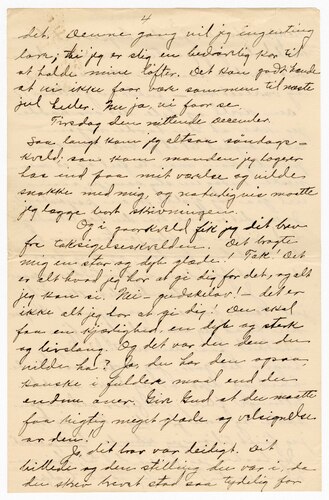 4
det. Denne gang vil jeg ingenting
love; thi jeg er slig en bedrøvelig kar til
at holde mine løfter. Det kan godt hænde
at vi ikke faar være sammen til næste
jul heller. Nu ja, vi faar se.
Tirsdag den nittende december.
Saa langt kom jeg altsaa søndags-
kveld; saa kom manden jeg logerer
hos ind paa mit værelse og vilde
snakke med mig, og naturligvis maatte
jeg lægge bort skrivningen.
Og i gaarkveld fik jeg dit brev
fra taksigelseskvelden. Det bragte
mig en stor og dyb glæde! Tak! Det
er alt hvad jeg har at gi dig for det, og alt
jeg kan si. Nei - gudskelov! - det er
ikke alt jeg har at gi dig! Du skal
faa en kjærlighed, en dyb og sterk
og livslang. Og det var den du
vilde ha? Ja, du har den ogsaa,
kanske i fuldere maal end du
endnu aner. Giv Gud at du maatte
faa rigtig meget glæde og velsignelse
av den!
Ja, dit brev var deiligt. Dit
billede og den stilling du var i, da
du skrev brevet stod saa tydelig for